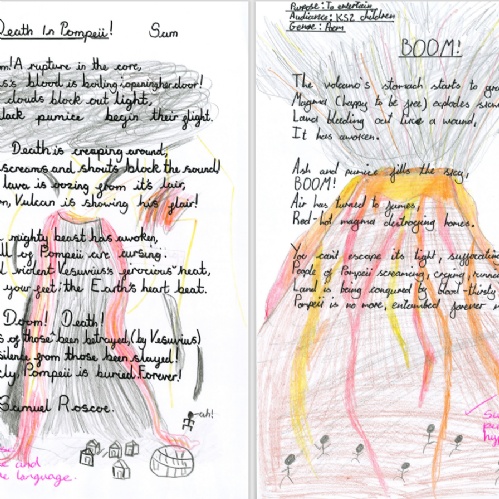 Death In Pompeii! Sam
! A rupture in the core,
blood is boiling; opening her door!
clouds block out light,
black pumice begin their flight.
Death is creaping around,
screams and shouts block the sound!
lava is oozing from it's lair,
Vulcan is showing his flair!
mighty beast has awoken,
of Pompeii are cursing.
violent Vesuvius's ferocious heat,
your feet; the Earth's heart beat.
Doom! Death!
of those been betrayed, (by Vesuvius)
silence from those been slayed!
Pompeii is buried Forever!
Samuel Roscoe.
ah!
and
language.
Purpose: To entertain
Audience: KS2 children
Genre: Poem
BOOM!
The volcano's stomach starts to
Magma (happy to be free) explodes
Land bleeding out like a wound,
It has awoken.
Ash and pumice fills the sky,
BOOM!
Air has turned to fumes,
Red-hot magma destroying homes.
You can't escape its light,
People of Pompeii screaming, crying,
Land is being conquered by blood-thirsty
Pompeii is no more, entombed forever